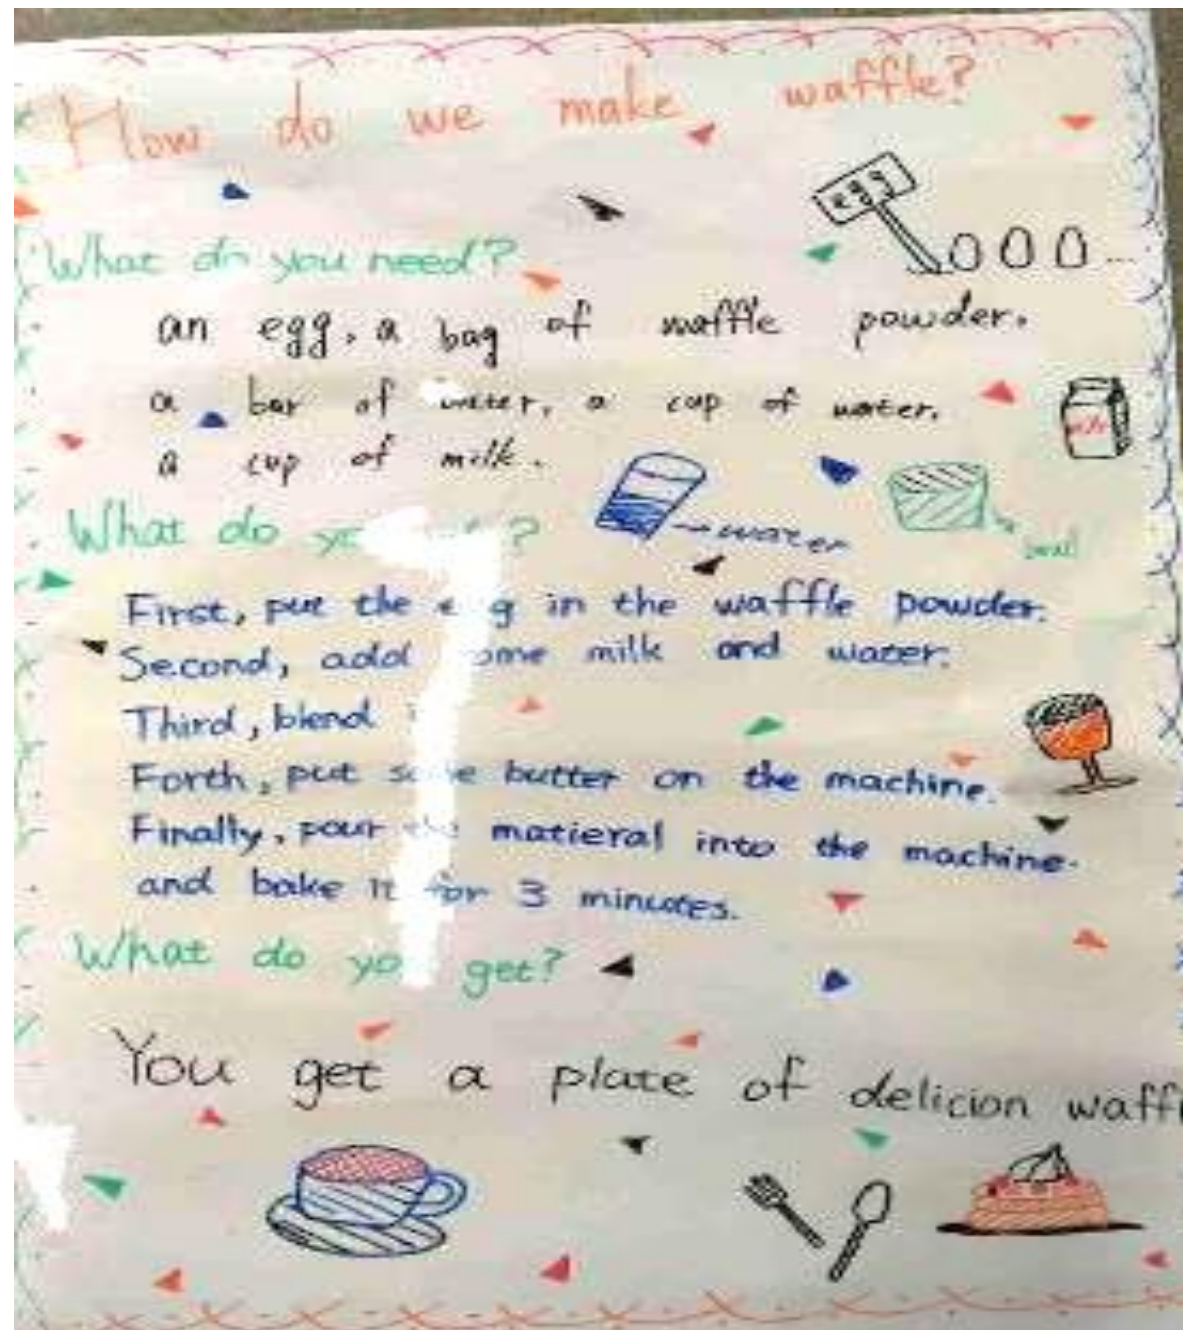 How do we make waffle?
eggs
What do you need?
an egg, a bag of waffle powder.
a bar of water, a cup of water.
a cup of milk.
milk
What do ?
water
First, put the e g in the waffle powder.
Second, add ome milk and water.
Third, blend
Forth, put some butter on the machine.
Finally, pour the matieral into the machine.
and bake it for 3 minutes.
What do you get?
You get a plate of delicion waff